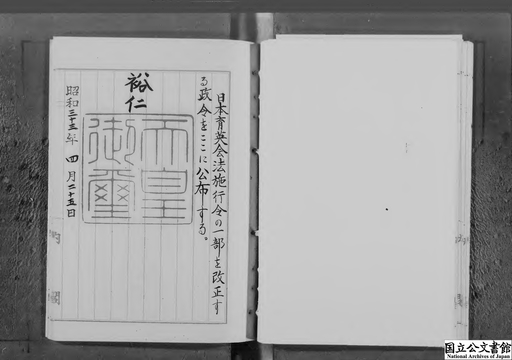 日本育英会法施行令の一部を改正す
る政令をここに公布する。
裕仁
天皇
御璽
昭和三十三年四月二十五日
国立公文書館
National Archives of Japan